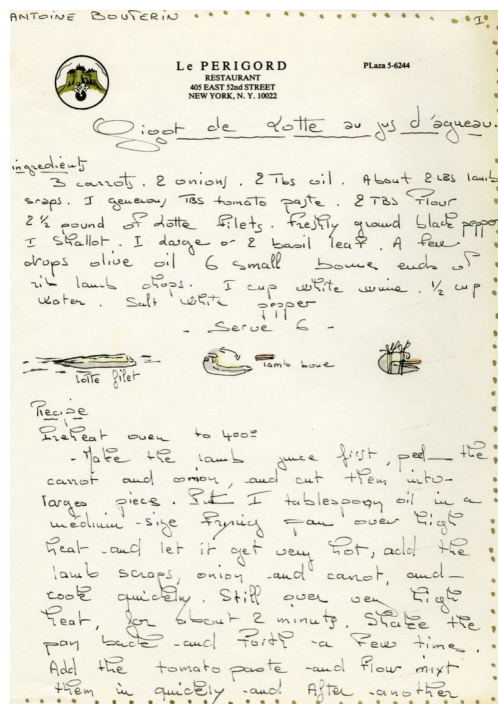 ANTOINE BOUTERIN
I
Le PERIGORD
PLaza 5-6244
RESTAURANT
405 EAST 52nd STREET
NEW YORK, N. Y. 10022
Gigot de Lotte au jus d'agneau.
ingredients
3 carrots. 2 onions. 2 Tbs oil. About 2 LBS lamb
scraps. I generous TBS tomato paste. 2 TBS Flour
2 ½ pound of Lotte filets. freshly ground black pepper
I Shallot. I large or 2 basil leaf. A few
drops olive oil 6 small bone ends of
rib lamb chops. I cup white wine. ½ cup
water. Salt white pepper
- Serve 6 -
lotte filet
lamb bone
Recipe
Preheat oven to 400°
- Make the lamb juice first, peel the
carrot and onion, and cut them into
larges piece. Put I tablespoon oil in a
medium-size frying pan over high
heat and let it get very hot, add the
lamb scraps, onion and carrot, and
cook quickly. Still over very high
heat, for about 2 minuts. Shake the
pan back and forth a few times.
Add the tomato paste and flow mixt
them in quickly and After another